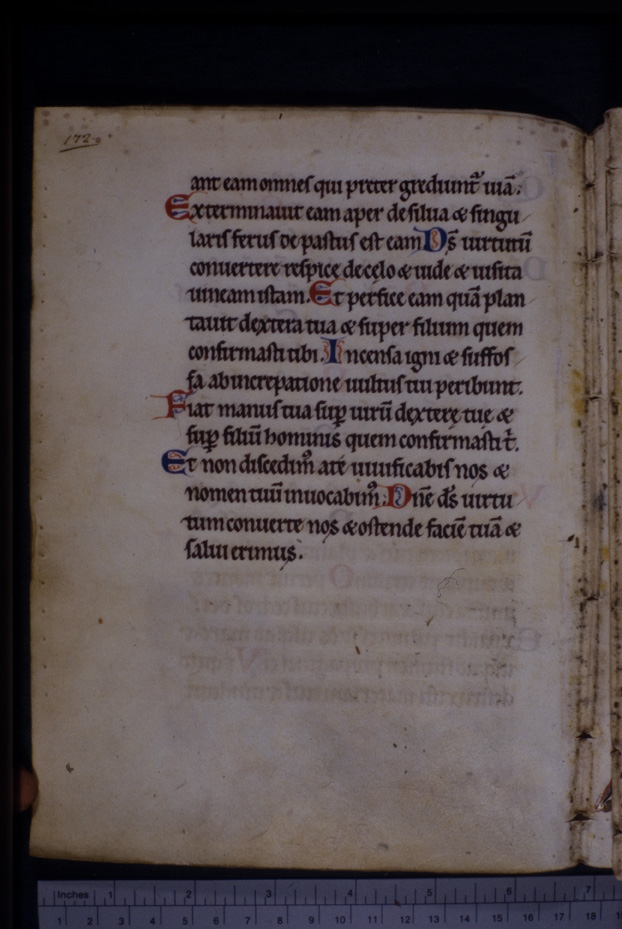 172
ant eam omnes qui preter grediunt̃ uiā.
Exterminauit eam aper de silua & singu
laris ferus depastus est eam Ds̄ uirtutū
conuertere respice de celo & uide & uisita
uineam istam. Et perfice eam quā plan
tauit dextera tua & super filium quem
confirmasti tibi. Incensa igni & suffos
sa ab increpatione uultus tui peribunt.
Fiat manus tua sup̄ uirū dexterę tue &
sup̄ filiū hominis quem confirmasti t̄.
Et non discedimꝰ a te uiuificabis nos &
nomen tuū inuocabimꝰ. Dn̄e ds̄ uirtu
tum conuerte nos & ostende faciē tuā &
salui erimus.
Inches 1 2 3 4 5 6 7
1 2 3 4 5 6 7 8 9 10 11 12 13 14 15 16 17 18